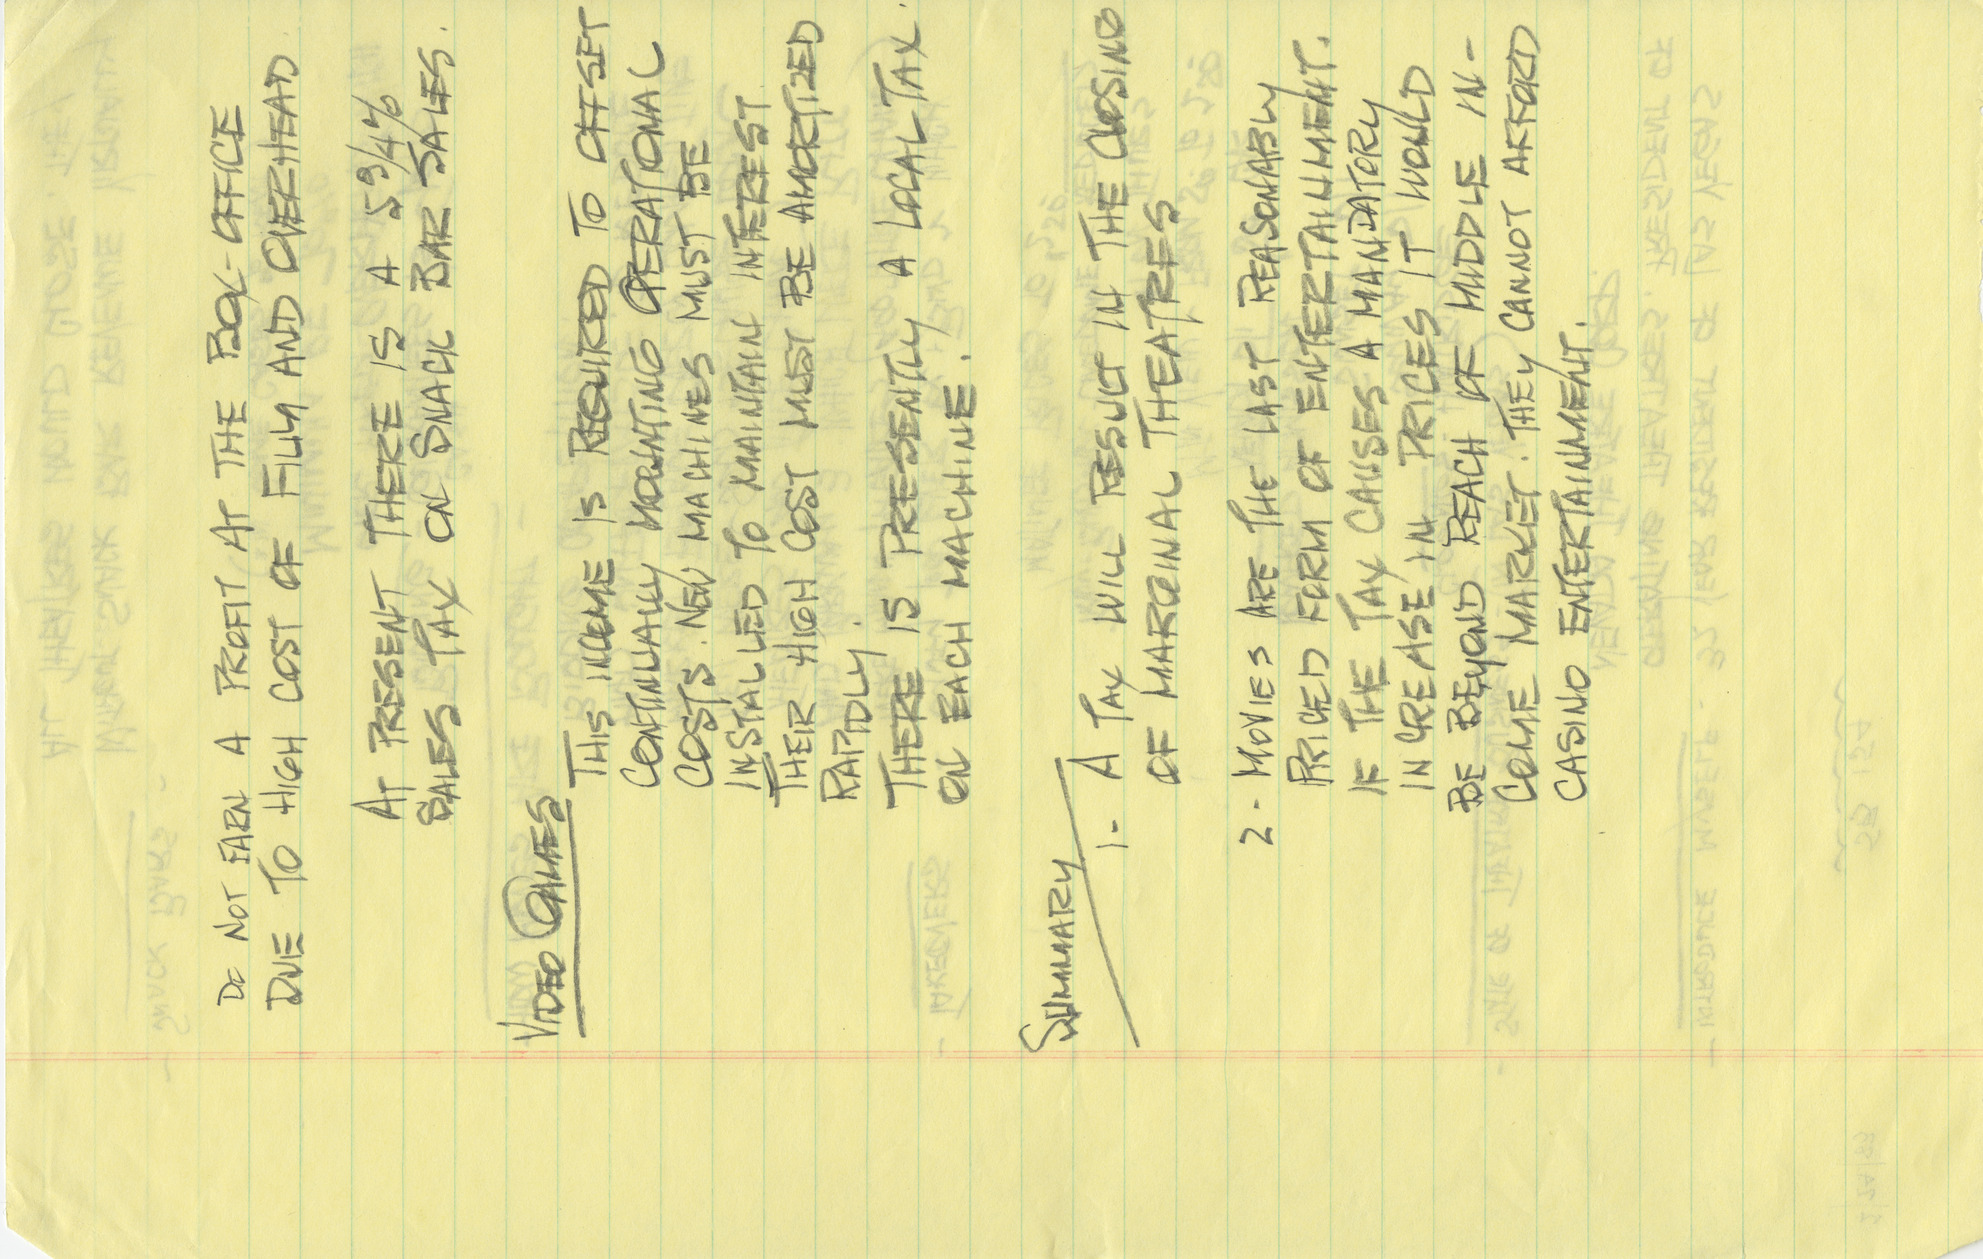 DO NOT EARN A PROFIT AT THE BOX-OFFICE
DUE TO HIGH COST OF FILM AND OVERHEAD.
AT PRESENT THERE IS A 5 3/4%
SALES TAX ON SNACK BAR SALES.
VIDEO GAMES
THIS INCOME IS REQUIRED TO OFFSET
CONTINUALLY MOUNTING OPERATIONAL
COSTS. NEW MACHINES MUST BE
INSTALLED TO MAINTAIN INTEREST
THEIR HIGH COST MUST BE AMORTIZED
RAPIDLY.
THERE IS PRESENTLY A LOCAL TAX.
ON EACH MACHINE.
SUMMARY
1- A TAX WILL RESULT IN THE CLOSING
OF MARGINAL THEATRES
2- MOVIES ARE THE LAST REASONABLY
PRICED FORM OF ENTERTAINMENT.
IF THE TAX CAUSES A MANDATORY
INCREASE IN PRICES IT WOULD
BE BEYOND REACH OF MIDDLE IN-
COME MARKET. THEY CANNOT AFFORD
CASINO ENTERTAINMENT.